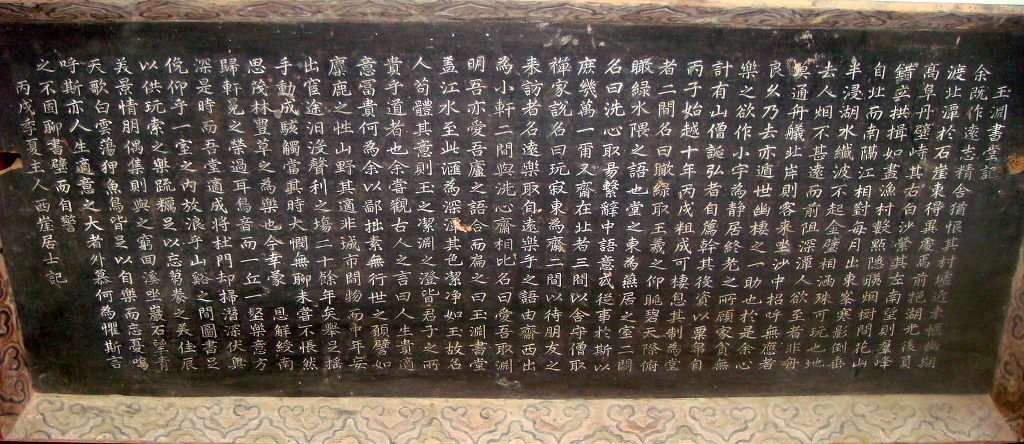 玉淵書堂記
余旣作遠志精舍猶恨其村墟近未愜幽期
渡北潭於石崖東得異處焉前挹湖光後負
高阜丹壁峙其右白沙縈其左南望則羣峰
錯立拱揖如畫漁村數點隱映烟樹間花山
自北而南隔江相對每月出東峯寒影倒垂
半浸湖水纖波不起金壁相涵殊可玩也地
去人烟不甚遠而前阻深潭人欲至者非舟
莫通舟艤北岸則客來坐沙中招呼無應者
良久乃去亦遁世幽棲之一助也於是余心
樂之欲作小宇為靜居終老之所顧家貧無
計有山僧誕弘者自薦幹其後資以粟帛自
丙子始越十年丙戌粗成可棲息其制為堂
者二間名曰瞰綠取王羲之仰眺碧天際俯
瞰綠水隈之語也堂之東為燕居之室二間
名曰洗心取易繫辭中語意或從事於斯以
庶幾萬一爾又齋在北者三間以舍守僧取
禪家說名曰玩寂東為齋二間以待朋友之
来訪者名遠樂取自遠樂乎之語由齋西出
為小軒二間與洗心齋相比名曰愛吾取淵
明吾亦愛吾廬之語合而扁之曰玉淵書堂
盖江水至此滙為深潭其色潔净如玉故名
人苟體其意則玉之潔淵之澄皆君子之所
貴乎道者也余嘗觀古人之言曰人生貴適
意富貴何為余以鄙拙素無行世之願譬如
麋鹿之性山野其適非城市間物而中年妄
出宦途汨没聲利之塲二十餘年矣擧足搖
手動成駭觸當其時大悶無聊未嘗不悵然
思茂林豊草之為樂也今幸蒙恩解綬南
歸軒冕之榮過耳鳥音而一丘一壑樂意方
深是時而吾堂適成將杜門却掃潛深伏奧
俛仰乎一室之內放浪乎山谿之間圖書足
以供玩索之樂疏糲足以忘芻豢之美佳辰
美景情朋偶集則與之窮回溪坐巖石望青
天歌白雲蕩狎魚鳥皆足以自樂而忘憂嗚
呼斯亦人生適意之大者外慕何為懼斯言
之不固聊書壁而自警
丙戌季夏主人西崖居士記